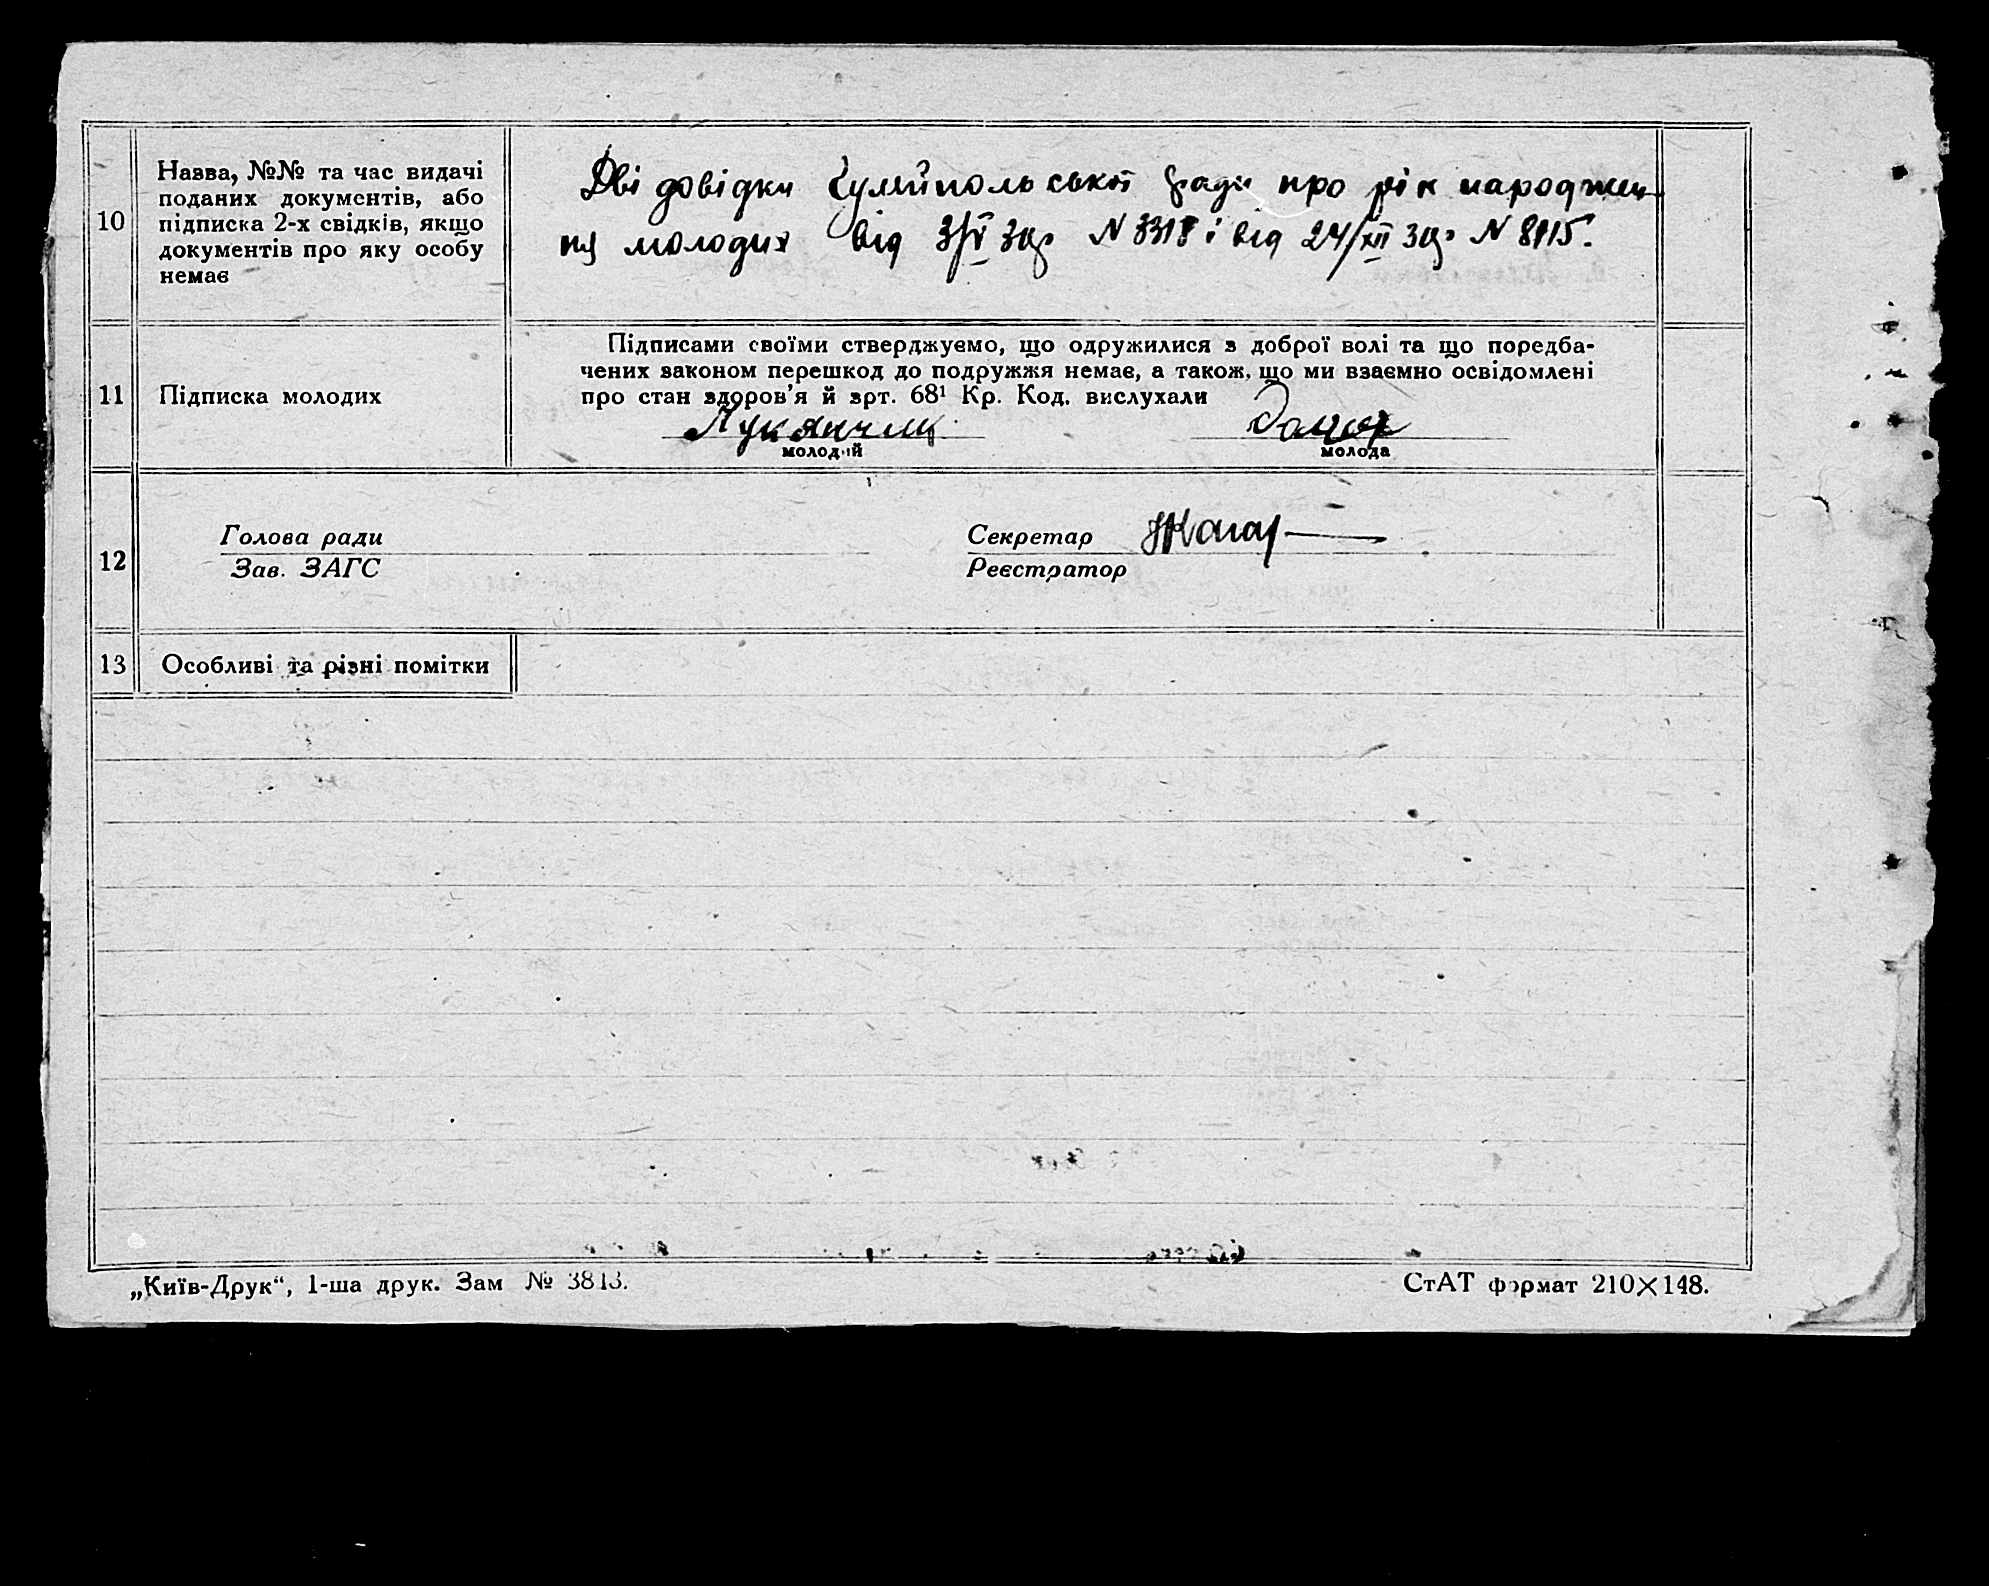 10
Назва, №№ та час видачі
поданих документів, або
підписка 2-х свідків, якщо
документів про яку особу
немає
Дві довідки Гуляйпольської ради про рік народжен-
ня молодих від 3/V 30р N 3318 і від 24/XII 30р N 8115.
11
Підписка молодих
Підписами своїми стверджуємо, що одружилися з доброї волі та що поредба-
чених законом перешкод до подружжя немає, а також, що ми взаємно освідомлені
про стан здоров'я й арт. 68¹ Кр. Код. вислухали
молодий
молода
12
Голова ради
Зав. ЗАГС
Секретар
Реєстратор
13
Особливі та різні помітки
„Київ-Друк“, 1-ша друк. Зам № 3813.
СтАТ формат 210×148.